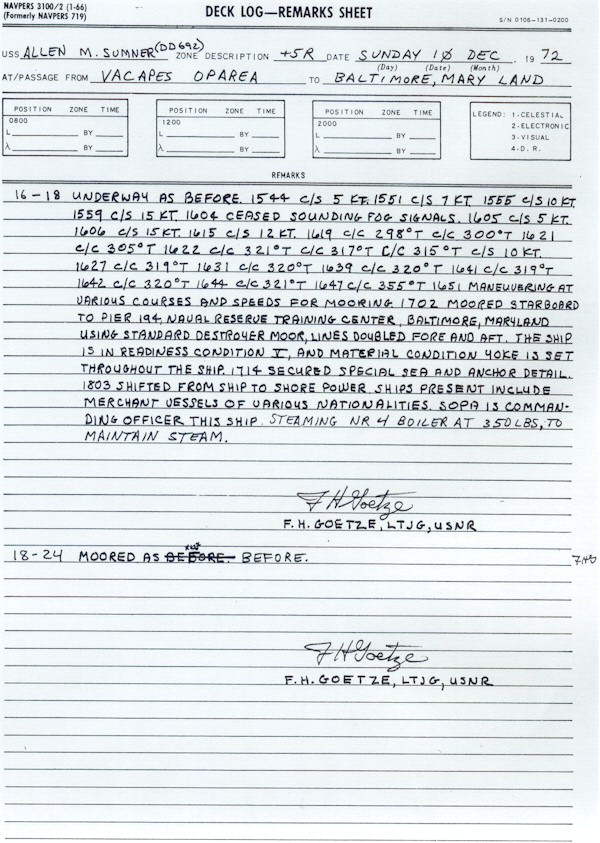 NAVPERS 3100/2 (1-66)
(Formerly NAVPERS 719)
DECK LOG—REMARKS SHEET
S/N 0106-131-0200
USS ALLEN M. SUMNER (DD692) ZONE DESCRIPTION +5R DATE SUNDAY 10 DEC, 1972
(Day) (Date) (Month)
AT/PASSAGE FROM VACAPES OPAREA TO BALTIMORE, MARY LAND
POSITION ZONE TIME
0800
L BY
λ BY
POSITION ZONE TIME
1200
L BY
λ BY
POSITION ZONE TIME
2000
L BY
λ BY
LEGEND: 1-CELESTIAL
2-ELECTRONIC
3-VISUAL
4-D. R.
REMARKS
16-18 UNDERWAY AS BEFORE. 1544 C/S 5 KT. 1551 C/S 7 KT 1555 C/S 10 KT
1559 C/S 15 KT. 1604 CEASED SOUNDING FOG SIGNALS. 1605 C/S 5 KT.
1606 C/S 15 KT. 1615 C/S 12 KT. 1619 C/C 298°T C/C 300°T 1621
C/C 305°T 1622 C/C 321°T C/C 317°T C/C 315°T C/S 10 KT.
1627 C/C 319°T 1631 C/C 320°T 1639 C/C 320°T 1641 C/C 319°T
1642 C/C 320°T 1644 C/C 321°T 1647 C/C 355°T 1651 MANEUVERING AT
VARIOUS COURSES AND SPEEDS FOR MOORING 1702 MOORED STARBOARD
TO PIER 194, NAVAL RESERVE TRAINING CENTER, BALTIMORE, MARYLAND
USING STANDARD DESTROYER MOOR, LINES DOUBLED FORE AND AFT. THE SHIP
IS IN READINESS CONDITION V, AND MATERIAL CONDITION YOKE IS SET
THROUGHOUT THE SHIP. 1714 SECURED SPECIAL SEA AND ANCHOR DETAIL.
1803 SHIFTED FROM SHIP TO SHORE POWER. SHIPS PRESENT INCLUDE
MERCHANT VESSELS OF VARIOUS NATIONALITIES. SOPA IS COMMAN-
DING OFFICER THIS SHIP. STEAMING NR 4 BOILER AT 350 LBS, TO
MAINTAIN STEAM.
F H Goetze
F. H. GOETZE, LTJG, USNR
18-24 MOORED AS BEFORE. BEFORE.
FHG
F H Goetze
F. H. GOETZE, LTJG, USNR